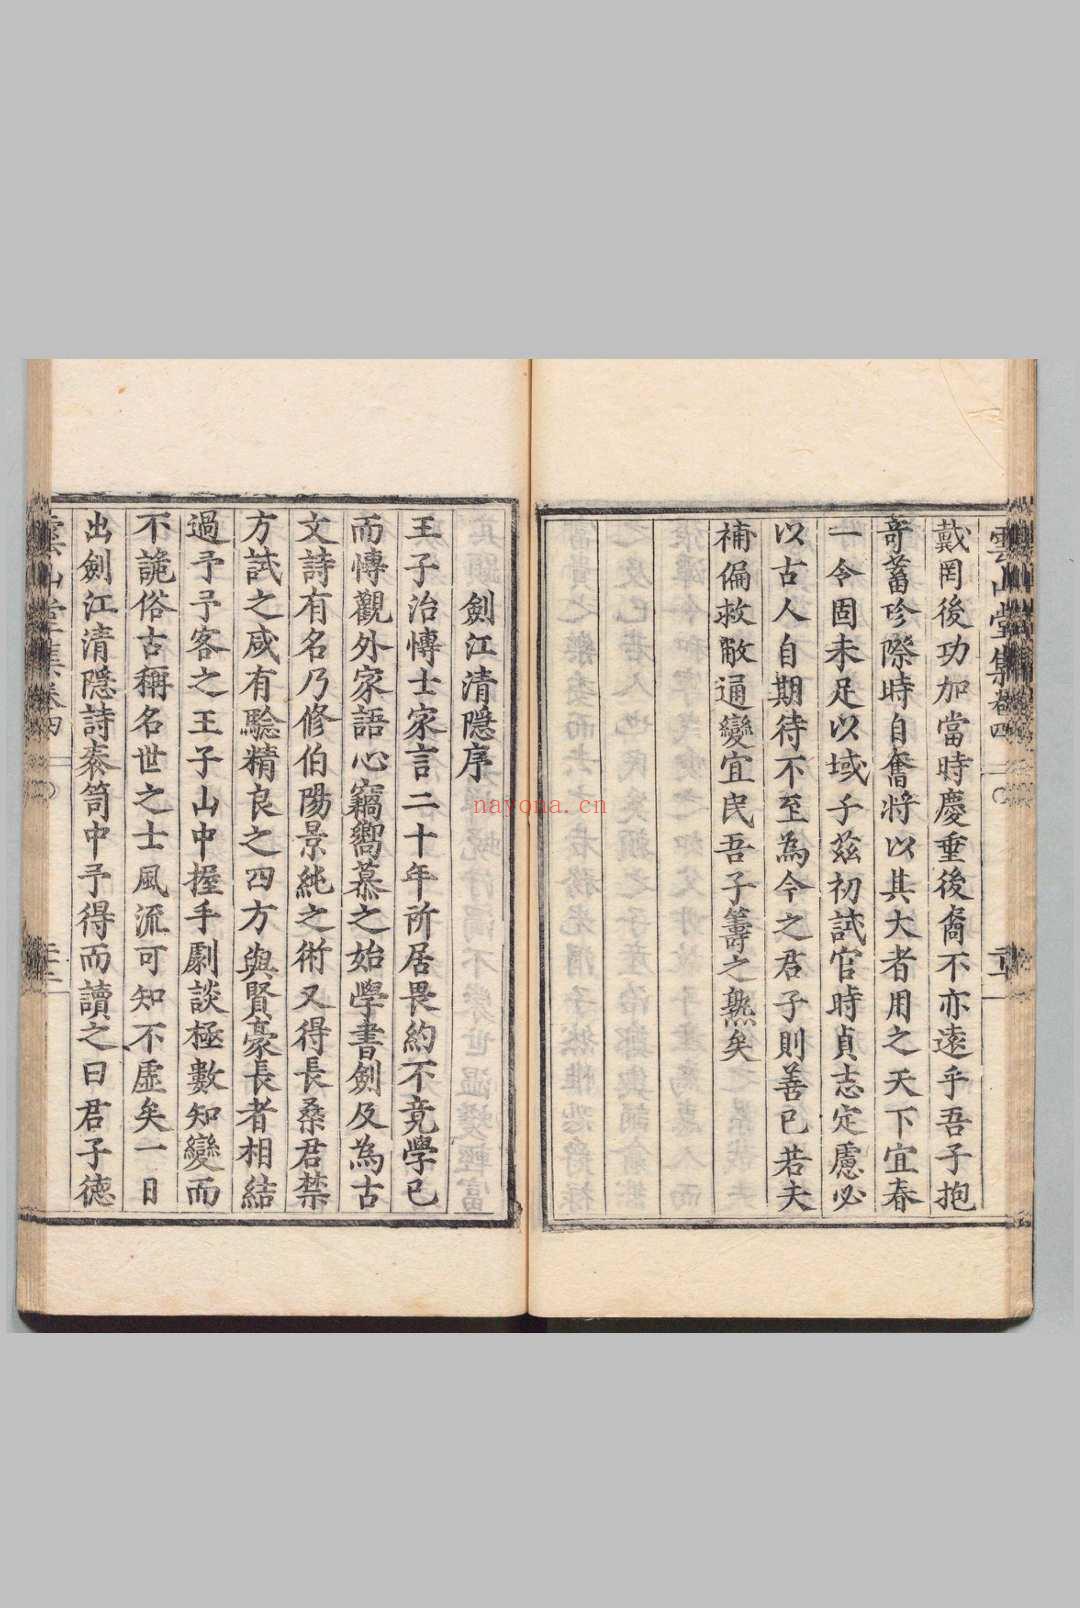 雲山堂集卷四
戴罔後功加當時慶垂後裔不亦遠乎吾子抱
竒蓄珍際時自奮將以其大者用之天下宜春
一令固未足以域子茲初試官時貞志定慮必
以古人自期待不至為今之君子則善已若夫
補偏救敝通變宜民吾子籌之熟矣
劍江清隱序
王子治愽士家言二十年所居畏約不竟學已
而愽觀外家語心竊嚮慕之始學書劍及為古
文詩有名乃修伯陽景純之術又得長桑君禁
方試之咸有驗精良之四方與賢豪長者相結
過予予客之王子山中握手劇談極數知變而
不詭俗古稱名世之士風流可知不虛矣一日
出劍江清隱詩袠笥中予得而讀之曰君子德
雲山堂集卷四
nayona.cn